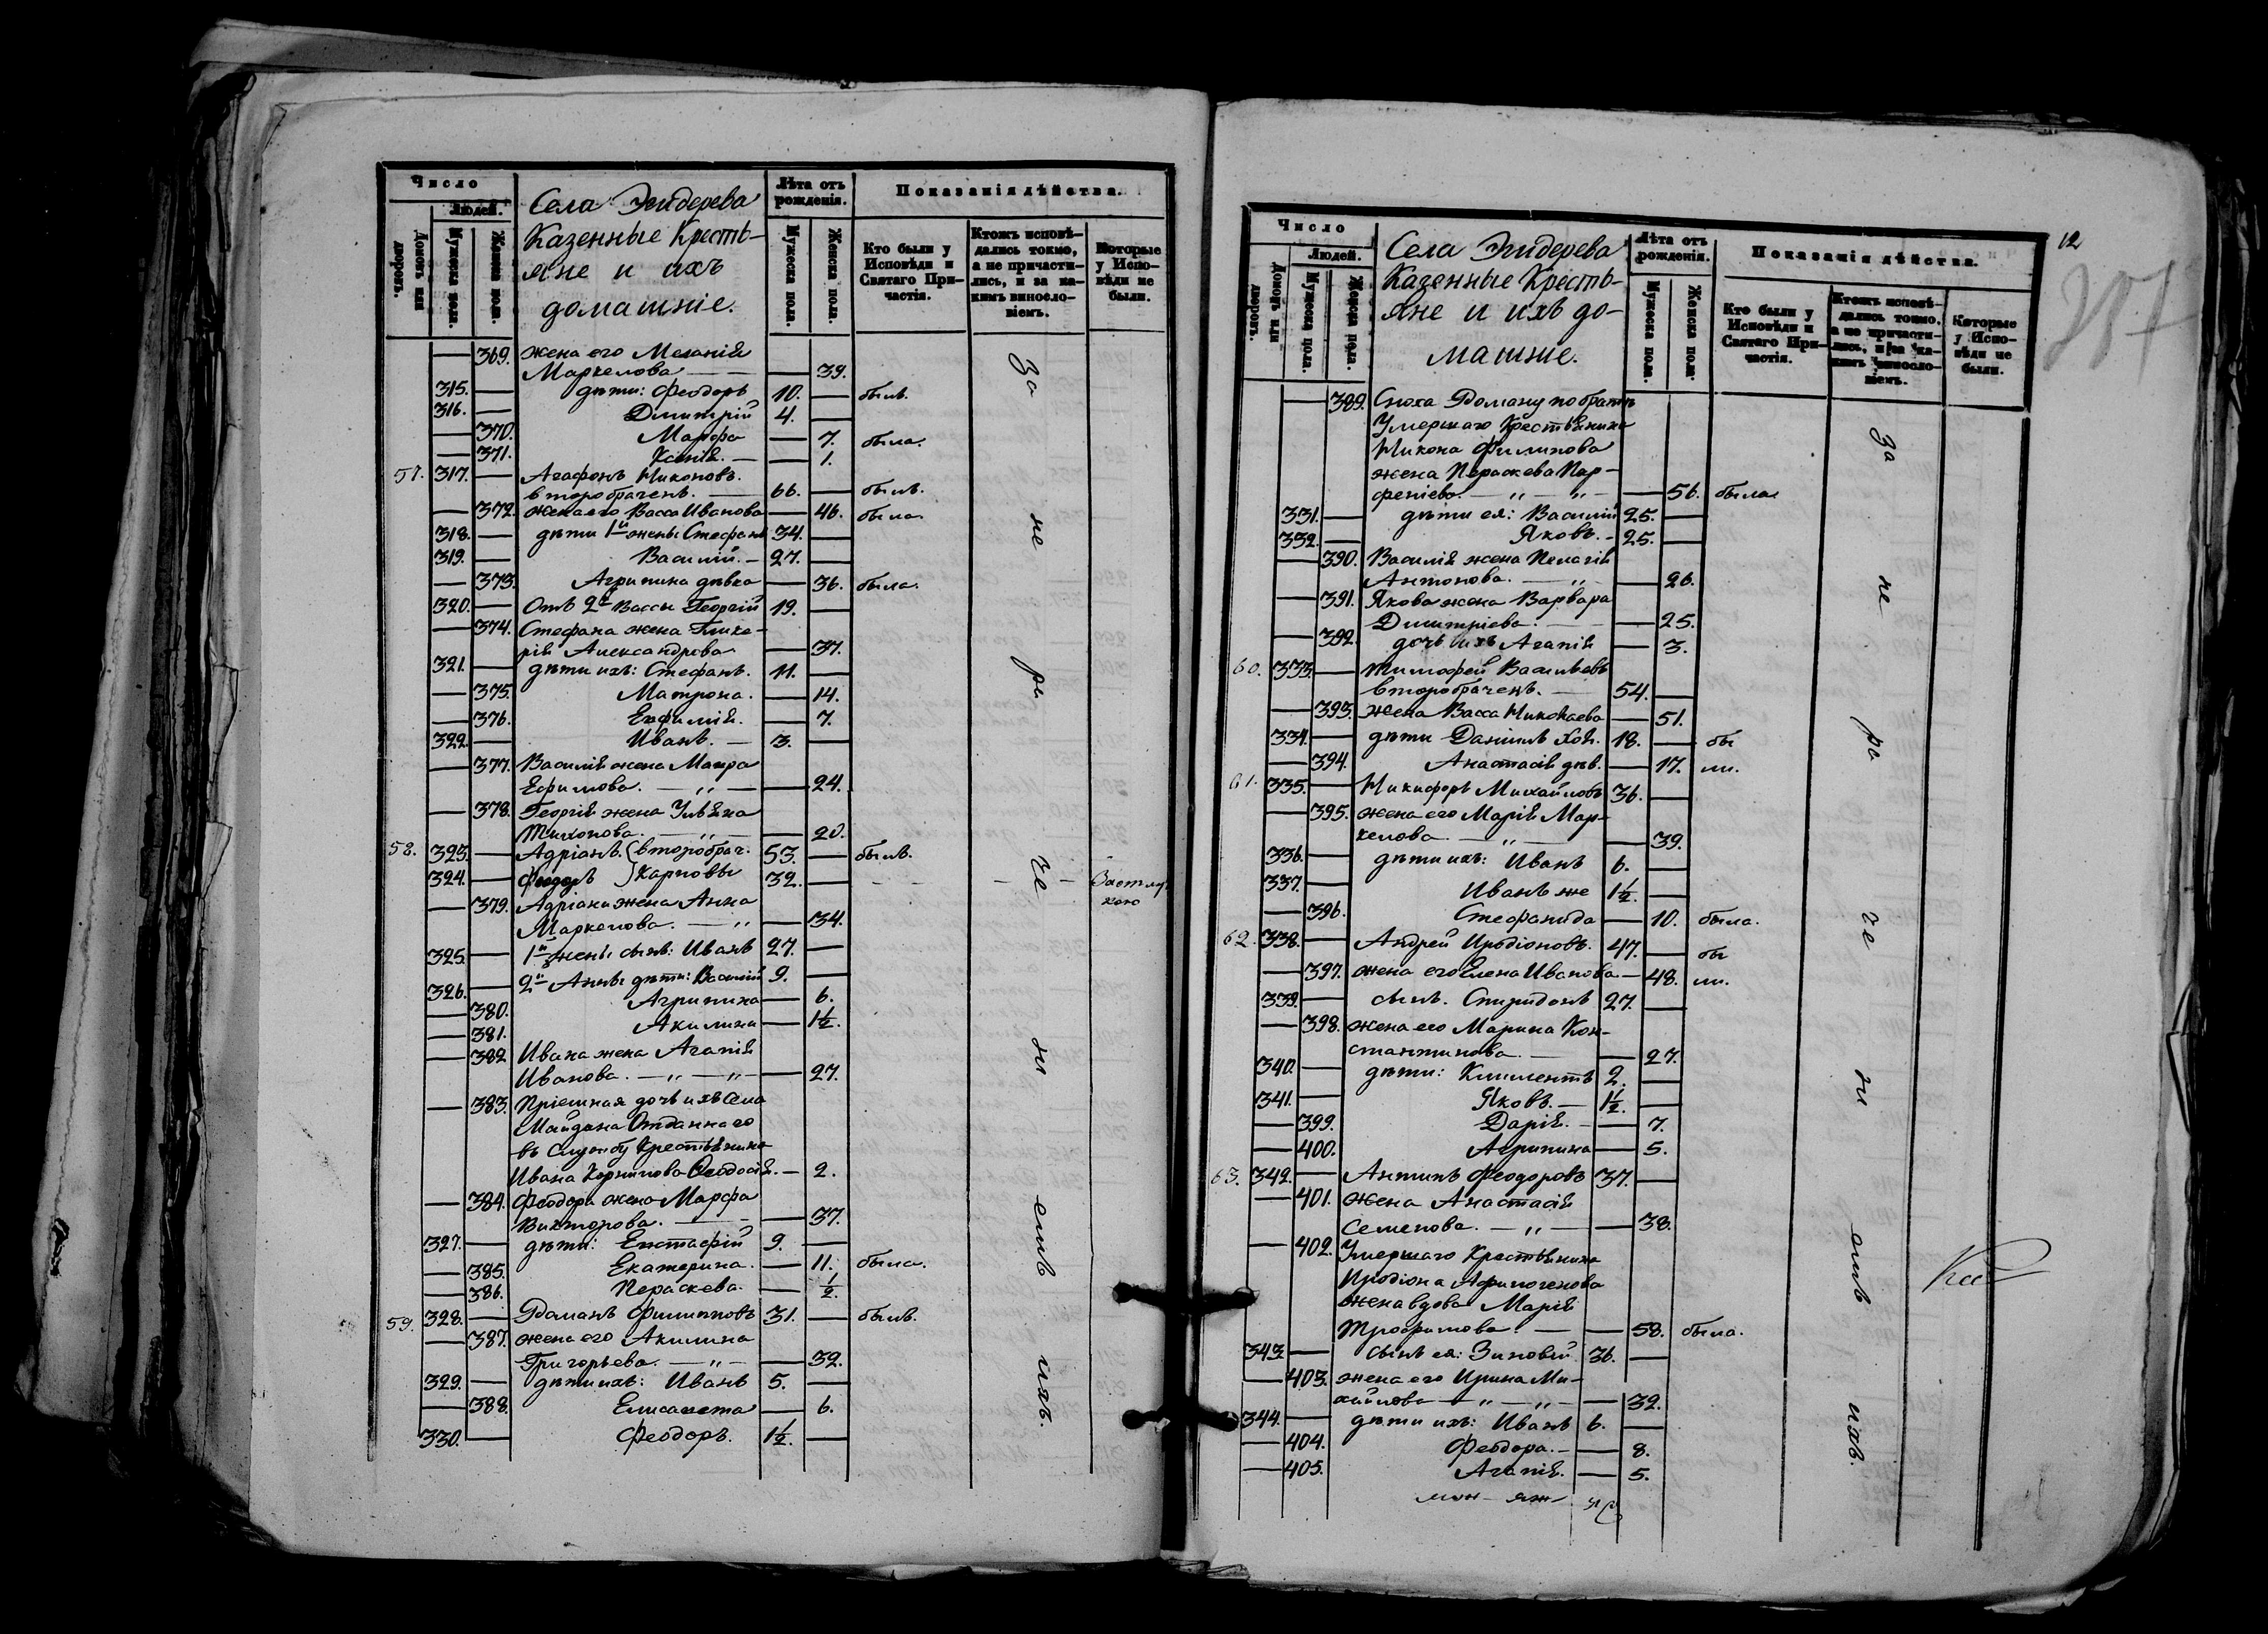 Число
Людей.
Домовъ или дворовъ.
Мужеска полa.
Женска пола.
Села Энидерева
Казенные Кресть-
яне и ихъ
домашніе.
Лѣта отъ рожденія.
Мужеска пола.
Женска пола.
Показанія дѣйства.
Кто были у Исповѣди и Святаго Причастія.
Ктожъ исповѣ-
дались токмо,
а не причасти-
лись, и за ка-
кимъ винosло-
віемъ.
Которые
у Испо-
вѣди не
были.
— 369. жена его Меланія
Маркелова — — — 39.
315. — дѣти: Феодоръ 10. — былъ.
316. — Димитрій 4. —
— 370. Марфа — 7. была.
— 371. Ксенія. — — 1.
57. 317. — Агафонъ Никоновъ.
второбраченъ. — 66. — былъ.
— 372. жена его Васса Иванова — 46. была.
318. — дѣти 1й жены Стефанъ 34. —
319. — Василій. — 27. —
— 373. Агрипина дѣвка — 36. была.
320. — Отъ 2й Вассы Георгій 19. —
— 374. Стефана жена Глике-
рія Александрова — 37.
321. — дѣти ихъ: Стефанъ. 11. —
— 375. Матрона. — 14.
— 376. Евфимія. — 7.
322. — Иванъ. — 3. —
— 377. Василія жена Мавра
Ефимова. — „ — — 24.
— 378. Георгія жена Ульяна
Тихонова. — „ — — 20.
58. 323. — Адріанъ (второбрач. 53. — былъ.
324. — Феодоръ } Карповы 32. —
— 379. Адріана жена Анна
Маркелова. — „ — 34.
325. — 1й жены сынъ: Иванъ 27. —
326. — 2й Анны дѣти: Василій 9. —
— 380. Агрипина — 6.
— 381. Акилина — 1½.
— 382 Ивана жена Агапія
Иванова. — „ — „ — — 27.
— 383. Пріемная дочь ихъ села
Майдана Отданнаго
въ службу Крестьянина
Ивана Корнилова Феодосія. — 2.
— 384. Феодора жена Марфа
Викторова. — — 37.
327. — дѣти: Евстафій 9. —
— 385. Екатерина. — 11. была.
— 386. Параскева. — ½.
59. 328. — Романъ Филиповъ 31. — былъ.
— 387. жена его Акилина
Григорьева. — „ — — 32.
329. — дѣти ихъ: Иванъ 5. —
— 388. Елисавета — 6.
330. — Феодоръ. 1½. —
За не ра че ні емъ ихъ.
12
Число
Людей.
Домовъ или дворовъ.
Мужеска пола.
Женска пола.
Села Энидерева
Казенные Кресть-
яне и ихъ до-
машніе.
Лѣта отъ рожденія.
Мужеска пола.
Женска пола.
Показанія дѣйства.
Кто были у Исповѣди и Святаго Причастія.
Которые
у Испо-
вѣди не
были.
— 389. Сноха Роману по братѣ
Умершаго Крестьянина
Никона Филипова
жена Параскева Пар-
феніева. — „ — „ — — 56. была
331. — дѣти ея: Василій 25. —
332. — Яковъ. — 25. —
— 390. Василія жена Пелагія
Антонова. — „ — 26.
— 391. Якова жена Варвара
Димитріева. — — 25.
— 392. дочь ихъ Агапія — 3.
60. 333. — Тимофей Васильевъ
второбраченъ. — 54. —
— 393. жена Васса Николаева — 51.
334. — дѣти Даніилъ хол. 18. — бы
— 394. Анастасія дѣв. — 17. ли.
61. 335. — Никифоръ Михайловъ 36. —
— 395. жена его Марія Мар-
келова — „ — — 39.
336. — дѣти ихъ: Иванъ 6. —
337. — Иванъ же 1½. —
— 396. Стефанида — 10. была.
62. 338. — Андрей Иродіоновъ. 47. — бы
— 397. жена его Елена Иванова — 48. ли.
339. — сынъ. Спиридонъ 27. —
— 398. жена его Марина Кон-
стантинова. — — 27.
340. — дѣти: Климентъ 2. —
341. — Яковъ. — 1½. —
— 399. Дарія. — — 7.
— 400. Агрипина — 5.
63. 342. — Антипъ Феодоровъ 37. —
— 401. жена Анастасія
Семенова. — „ — — 38.
— 402. Умершаго Крестьянина
Иродіона Афиногенова
жена вдова Марія
Трофимова. — — 58. была.
343 — сынъ ея: Зиновій 36. —
— 403. жена его Ирина Ми-
хайлова — „ — „ — — 32.
344. — дѣти ихъ: Иванъ 6. —
— 404. Феодора. — — 8.
— 405. Агапія. — 5.
За не ра че ні емъ ихъ.